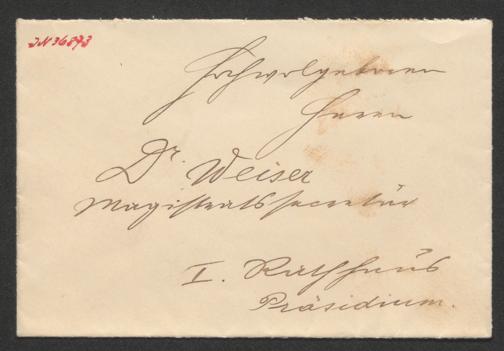 JN 36873
Hochwolgeboren
Herrn
Dr. Weiser
Magistratssecretär
I. Rathhaus
Präsidium.